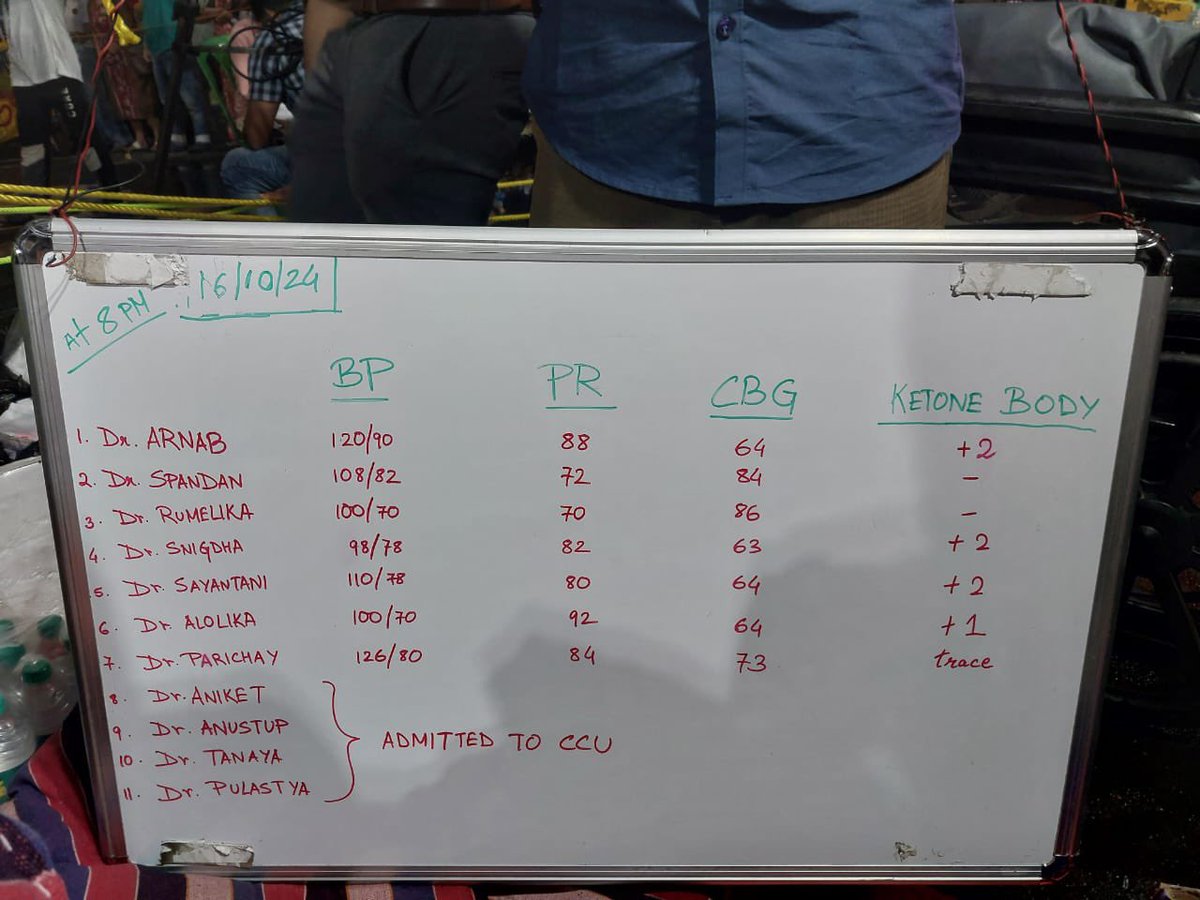 At 8 PM 16/10/24
BP PR CBG KETONE BODY
1. Dr. ARNAB 120/90 88 64 +2
2. Dr. SPANDAN 108/82 72 84 -
3. Dr. RUMELIKA 100/70 70 86 -
4. Dr. SNIGDHA 98/78 82 63 +2
5. Dr. SAYANTANI 110/78 80 64 +2
6. Dr ALOLIKA 100/70 92 64 +1
7. Dr. PARICHAY 126/80 84 73 trace
8. Dr. ANIKET
9. Dr. ANUSTUP
10. Dr. TANAYA
11. Dr. PULASTYA
ADMITTED TO CCU